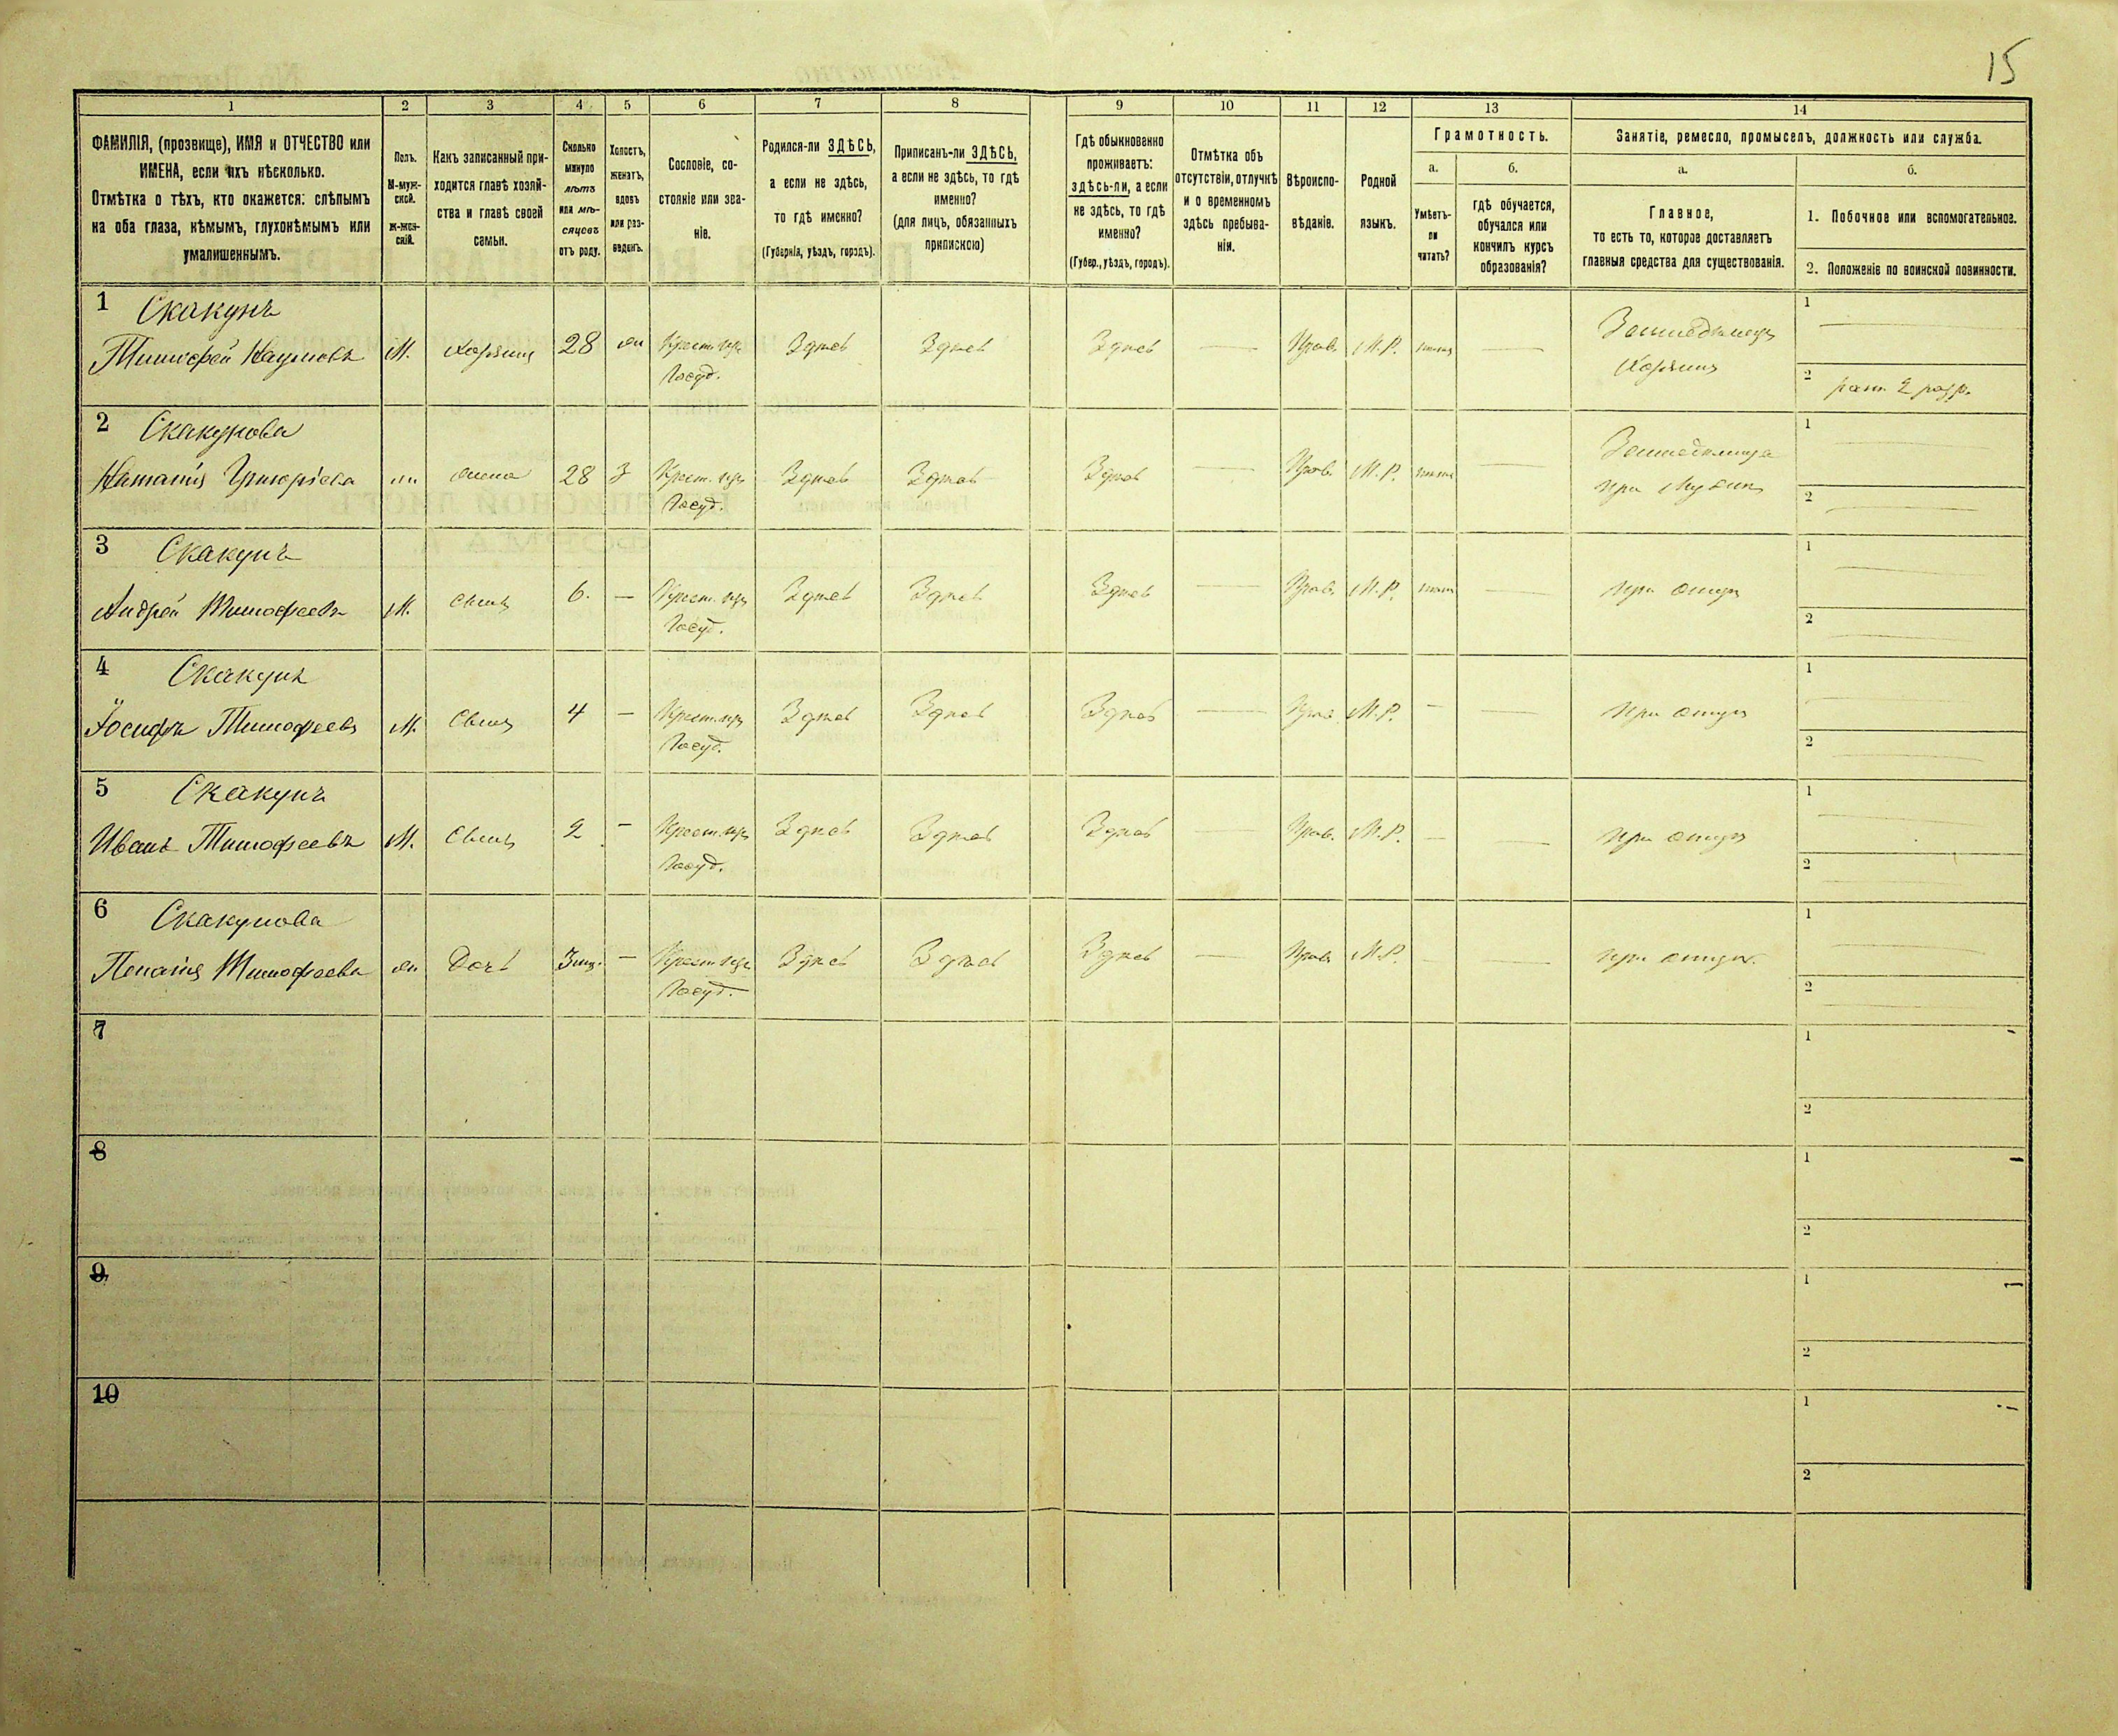 15
1 2 3 4 5 6 7 8 9 10 11 12 13 14
ФАМИЛІЯ, (прозвище), ИМЯ и ОТЧЕСТВО или
ИМЕНА, если ихъ нѣсколько.
Отмѣтка о тѣхъ, кто окажется: слѣпымъ
на оба глаза, нѣмымъ, глухонѣмымъ или
умалишеннымъ.
Полъ.
М-муж-
ской.
Ж-жен-
скій.
Какъ записанный при-
ходится главѣ хозяй-
ства и главѣ своей
семьи.
Сколько
минуло
лѣтъ
или мѣ-
сяцевъ
отъ роду.
Холостъ,
женатъ,
вдовъ
или раз-
веденъ.
Сословіе, со-
стояніе или зва-
ніе.
Родился-ли ЗДѢСЬ,
а если не здѣсь,
то гдѣ именно?
(Губернія, уѣздъ, городъ).
Приписанъ-ли ЗДѢСЬ,
а если не здѣсь, то гдѣ
именно?
(для лицъ, обязанныхъ
припискою)
Гдѣ обыкновенно
проживаетъ:
здѣсь-ли, а если
не здѣсь, то гдѣ
именно?
(Губер., уѣздъ, городъ).
Отмѣтка объ
отсутствіи, отлучкѣ
и о временномъ
здѣсь пребыва-
ніи.
Вѣроиспо-
вѣданіе.
Родной
языкъ.
Грамотность.
а.
Умѣетъ-
ли
читать?
б.
гдѣ обучается,
обучался или
кончилъ курсъ
образованія?
Занятіе, ремесло, промыселъ, должность или служба.
а.
Главное,
то есть то, которое доставляетъ
главныя средства для существованія.
б.
1. Побочное или вспомогательное.
2. Положеніе по воинской повинности.
1 Скакунъ
Тимофей Наумовъ М. хозяинъ 28 жн Крест. изъ Здѣсь Здѣсь Здѣсь — Прав. М.Р. —
Госуд.
Земледѣлецъ
Хозяинъ
1 —
2 рат. 2 разр.
2 Скакунова
Наталія Григоріева жн жена 28 з Крест. изъ Здѣсь Здѣсь Здѣсь — Прав. М.Р. —
Госуд.
Земледѣлица
при мужѣ
1 —
2 —
3 Скакунъ
Андрей Тимофеевъ М. сынъ 6. — Крест. изъ Здѣсь Здѣсь Здѣсь — Прав. М.Р. — при отцѣ
Госуд.
1 —
2 —
4 Скакунъ
Іосифъ Тимофеевъ М. сынъ 4 — Крест. изъ Здѣсь Здѣсь Здѣсь — Прав. М.Р. — — при отцѣ
Госуд.
1 —
2 —
5 Скакунъ
Иванъ Тимофеевъ М. сынъ 2 — Крест. изъ Здѣсь Здѣсь Здѣсь — Прав. М.Р. — — при отцѣ
Госуд.
1 —
2 —
6 Скакунова
Тимофеева жн Дочь 3 мц. — Крест. изъ Здѣсь Здѣсь Здѣсь — Прав. М.Р. — — при отцѣ.
Госуд.
1 —
2 —
7
1
2
8
1
2
9
1
2
10
1
2